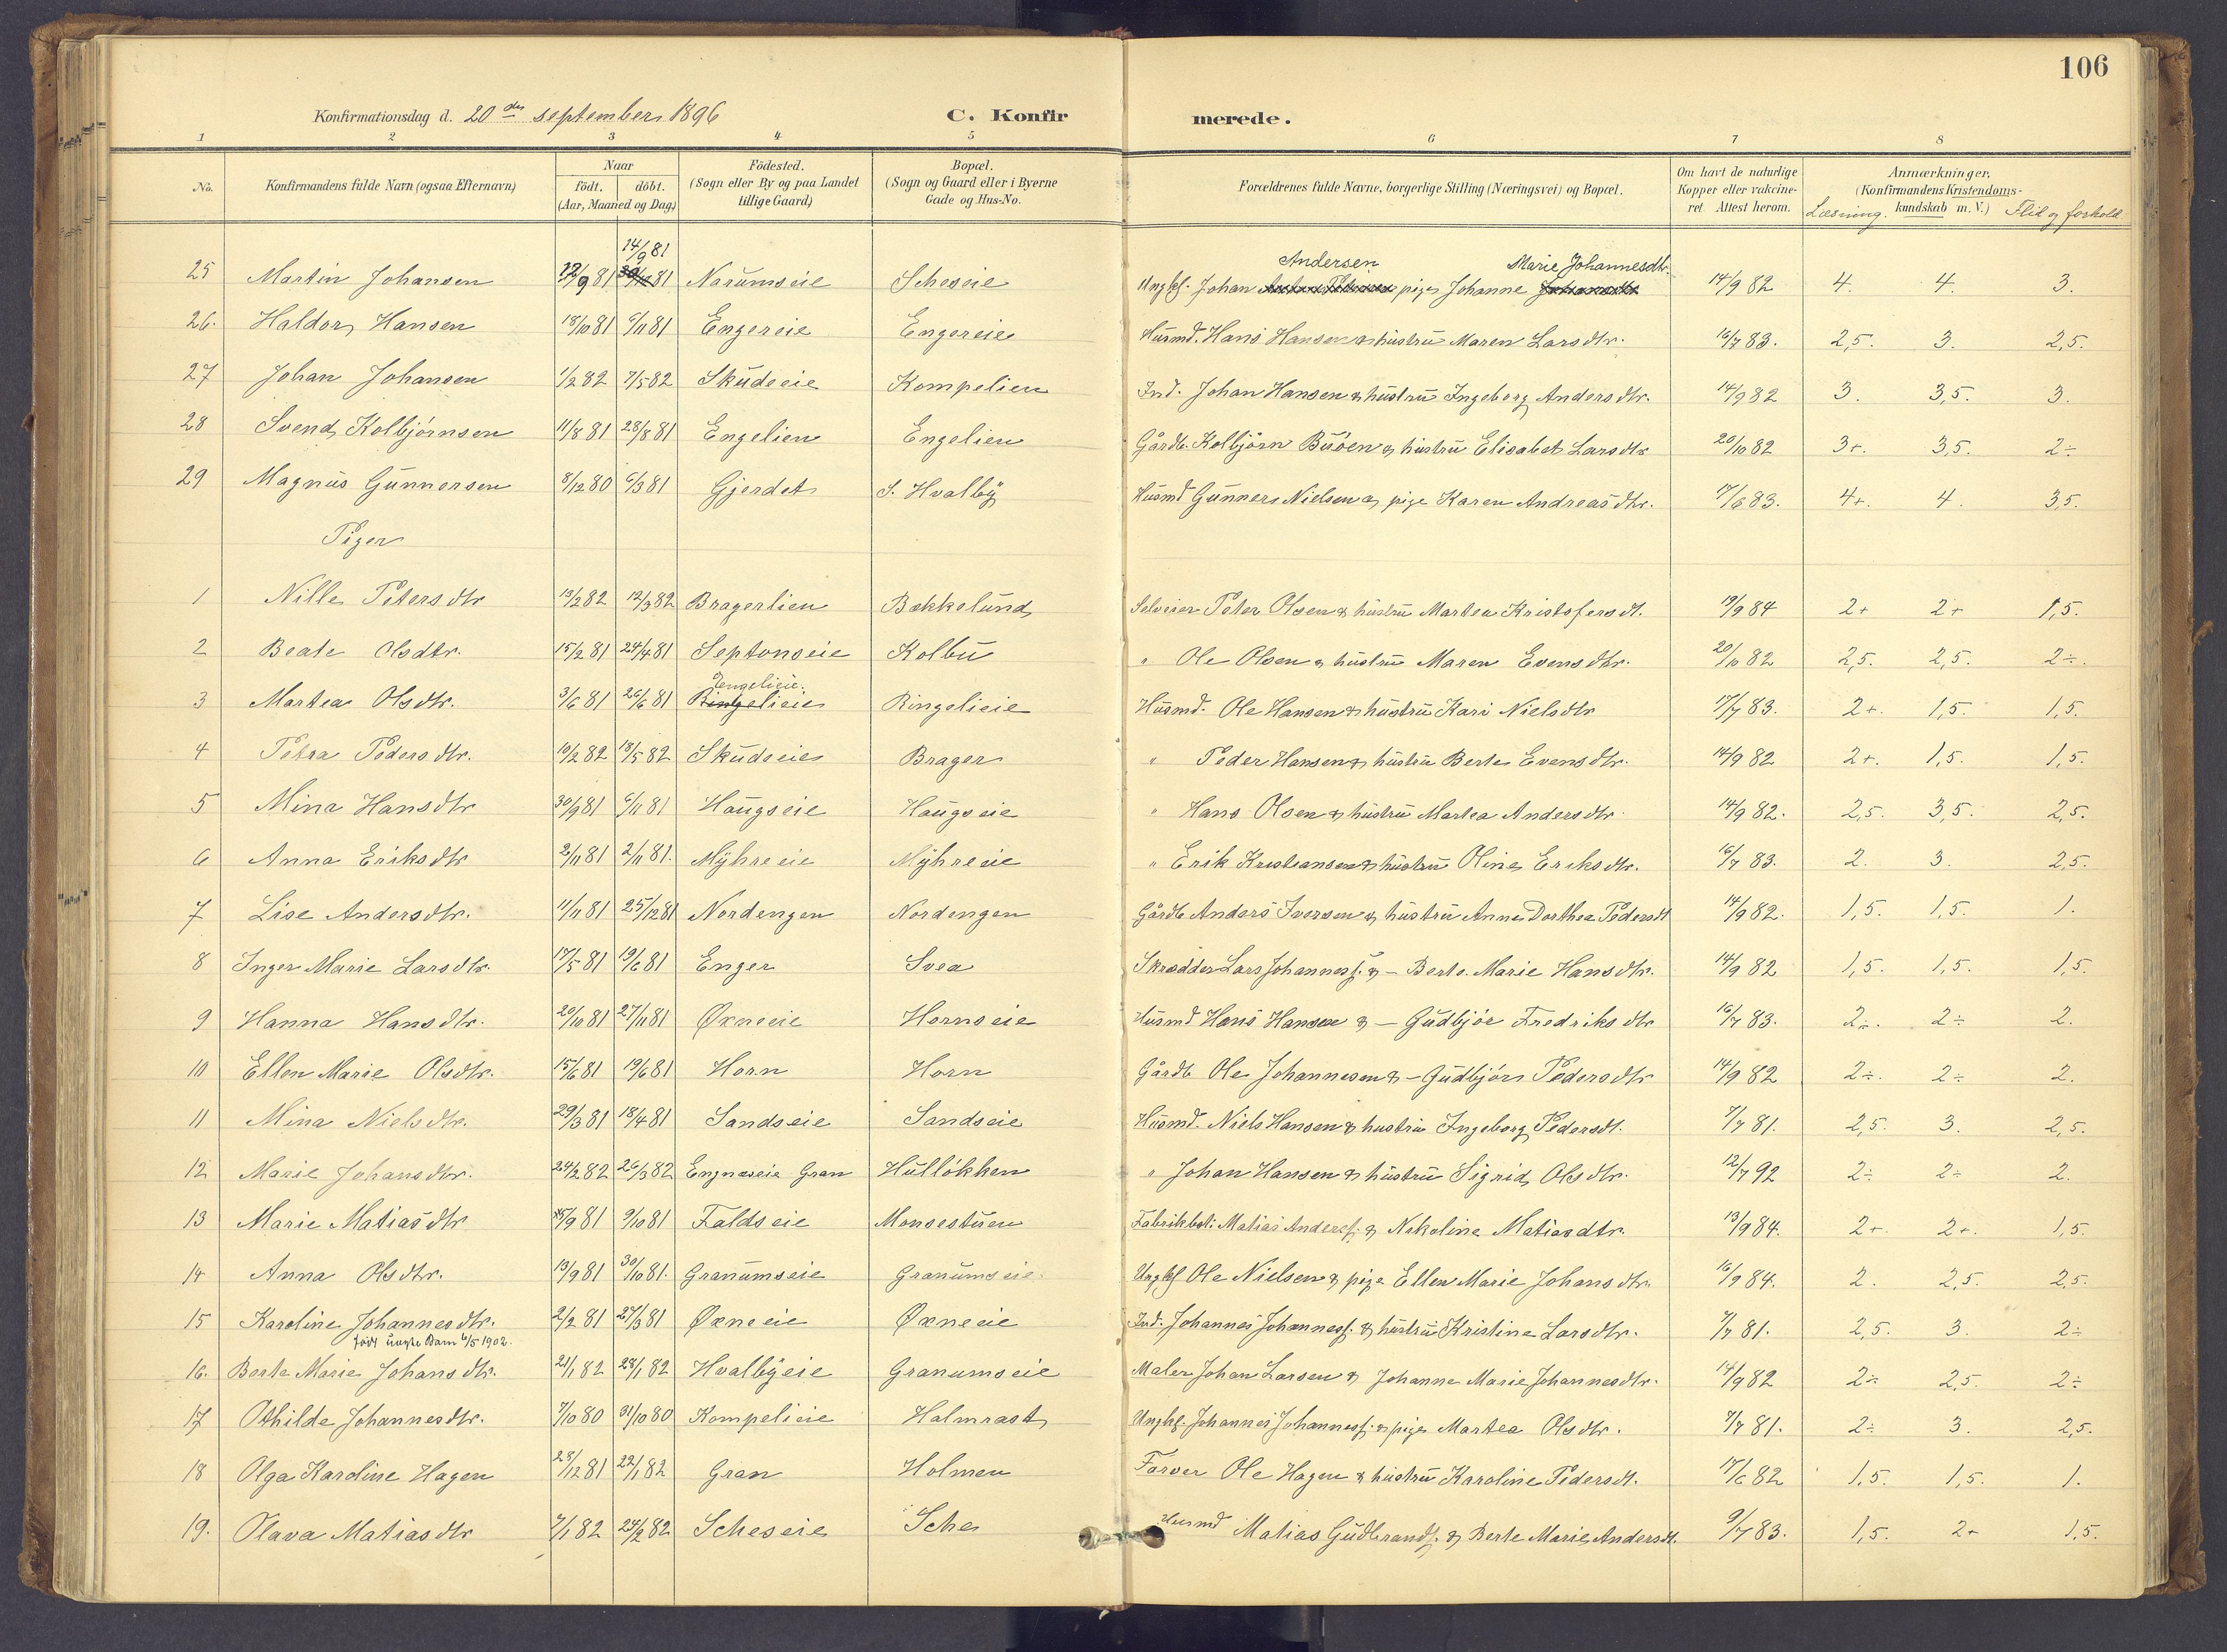 106
Konfirmationsdag d. 20de september 1896 C. Konfirmerede.
1 2 3 4 5 6 7 8
No. Konfirmandens fulde Navn (ogsaa Efternavn) Naar födt. döbt. (Aar, Maaned og Dag) Födested. (Sogn eller By og paa Landet tillige Gaard) Bopæl. (Sogn og Gaard eller i Byerne Gade og Hus-No. Forældrenes fulde Navne, borgerlige Stilling (Næringsvei) og Bopæl. Om havt de naturlige Kopper eller vakcineret. Attest herom. Anmærkninger. (Konfirmandens Kristendomskundskab m. V.) Læsning. Flid og forhold
14/9 81 Andersen Marie Johannesdtr.
25 Martin Johansen 12/9 81 Narumseie Scheseie Ungkf. Johan pige Johanne 14/9 82 4. 4. 3.
26. Haldor Hansen 18/10 81 6/11 81 Engereie Engereie Husmd. Hans Hansen & hustru Maren Larsdtr. 16/7 83. 2,5. 3. 2,5.
27 Johan Johansen 1/2 82 7/5 82 Skudseie Kompelien Ind. Johan Hansen & hustru Ingeborg Andersdtr. 14/9 82 3. 3,5. 3.
28 Svend Kolbjörnsen 11/8 81 28/8 81 Engelien Engelien Gårdb. Kolbjörn Buöen & hustru Elisabet Larsdtr 20/10 82 3+. 3,5. 2÷
29 Magnus Gunnersen 8/12 80 6/3 81 Gjerdet S. Hvalby Husmd Gunner Nielsen & pige Karen Andreasdtr. 7/6 83. 4+. 4. 3,5.
Piger
1 Nille Petersdtr 13/2 82 12/3 82 Bragerlien Bækkelund Selveier Peter Olsen & hustru Martea Kristofersdt. 19/9 84 2+ 2+ 1,5.
2 Beate Olsdtr. 15/2 81 24/4 81 Septonseie Kolbu " Ole Olsen & hustru Maren Evensdtr. 20/10 82 2,5. 2,5. 2÷.
Engelieie.
3 Martea Olsdtr. 3/6 81 26/6 81 Ringelieie Ringelieie Husmd. Ole Hansen & hustru Kari Nielsdtr 17/7 83. 2+. 1,5. 1,5.
4 Petra Pedersdtr. 10/2 82 18/5 82 Skudseie Brager " Peder Hansen & hustru Berte Evensdtr. 14/9 82 2+. 1,5. 1,5.
5 Mina Hansdtr 30/9 81 6/11 81 Haugseie Haugseie " Hans Olsen & hustru Martea Andersdtr. 14/9 82. 2,5. 3,5. 2,5.
6 Anna Eriksdtr 2/11 81 2/11 81. Myhreeie Myhreeie " Erik Kristiansen & hustru Oline Eriksdtr. 16/7 83. 2. 3. 2,5.
7 Lise Andersdtr. 11/11 81 25/12 81 Nordengen Nordengen Gårdb Anders Iversen & hustru Anne Dorthea Pedersdt 14/9 82. 1,5. 1,5. 1.
8 Inger Marie Larsdtr. 17/5 81 19/6 81 Enger Svea Skrædder Lars Johannesf. & – Berte Marie Hansdtr. 14/9 82 1,5. 1,5. 1,5.
9 Hanna Hansdtr. 20/10 81 27/11 81 Øxneeie Hornseie Husmd Hans Hansen & – Gudbjör Fredriksdtr 16/7 83. 2÷. 2÷ 2.
10 Ellen Marie Olsdtr. 15/6 81 19/6 81 Horn Horn Gårdb Ole Johannesen & – Gudbjör Pedersdtr 14/9 82 2÷. 2÷ 2.
11 Mina Nielsdtr. 29/3 81 18/4 81 Sandseie Sandseie Husmd. Niels Hansen & hustru Ingeborg Pedersdt. 7/7 81. 2,5. 3. 2,5.
12 Marie Johansdtr. 24/2 82 26/3 82 Engnæseie Gran Hullökken " Johan Hansen & hustru Sigrid Olsdtr. 12/7 92 2÷ 2÷ 2.
13 Marie Matiasdtr 15/9 81 9/10 81 Faldseie Monsestuen Fabrikbet: Matias Andersf. & Nekoline Matiasdtr. 13/9 84. 2+. 2+. 1,5.
14 Anna Olsdtr. 13/9 81 30/10 81. Granumseie Granumseie. Ungkf Ole Nielsen & pige Ellen Marie Johansdtr. 16/9 84. 2. 2,5. 2,5.
15 Karoline Johannesdtr. 2/2 81 27/3 81 Øxneeie Øxneeie Ind. Johannes Johannesf. & hustru Kristine Larsdtr. 7/7 81. 2,5. 3. 2÷
född uægte Barn 6/5 1902.
16. Berte Marie Johansdtr. 21/1 82 28/1 82 Hvalbyeie Granumseie Maler Johan Larsen & Johanne Marie Johannesdtr. 14/9 82 2÷ 2,5. 2÷
17 Othilde Johannesdtr. 7/10 80 31/10 80 Kompelieie Halmrast Ungkf. Johannes Johannesf. & pige Martea Olsdtr. 7/7 81. 2÷ 3. 2,5.
18 Olga Karoline Hagen 28/12 81 22/1 82 Gran Holmen Farver Ole Hagen & hustru Karoline Pedersdt. 17/6 82 1,5. 1,5. 1.
19. Olava Matiasdtr 7/1 82 24/2 82 Scheseie Sche Husmd Matias Gudbrandf. & Berte Marie Andersdt. 9/7 83. 1,5. 2+ 1,5.